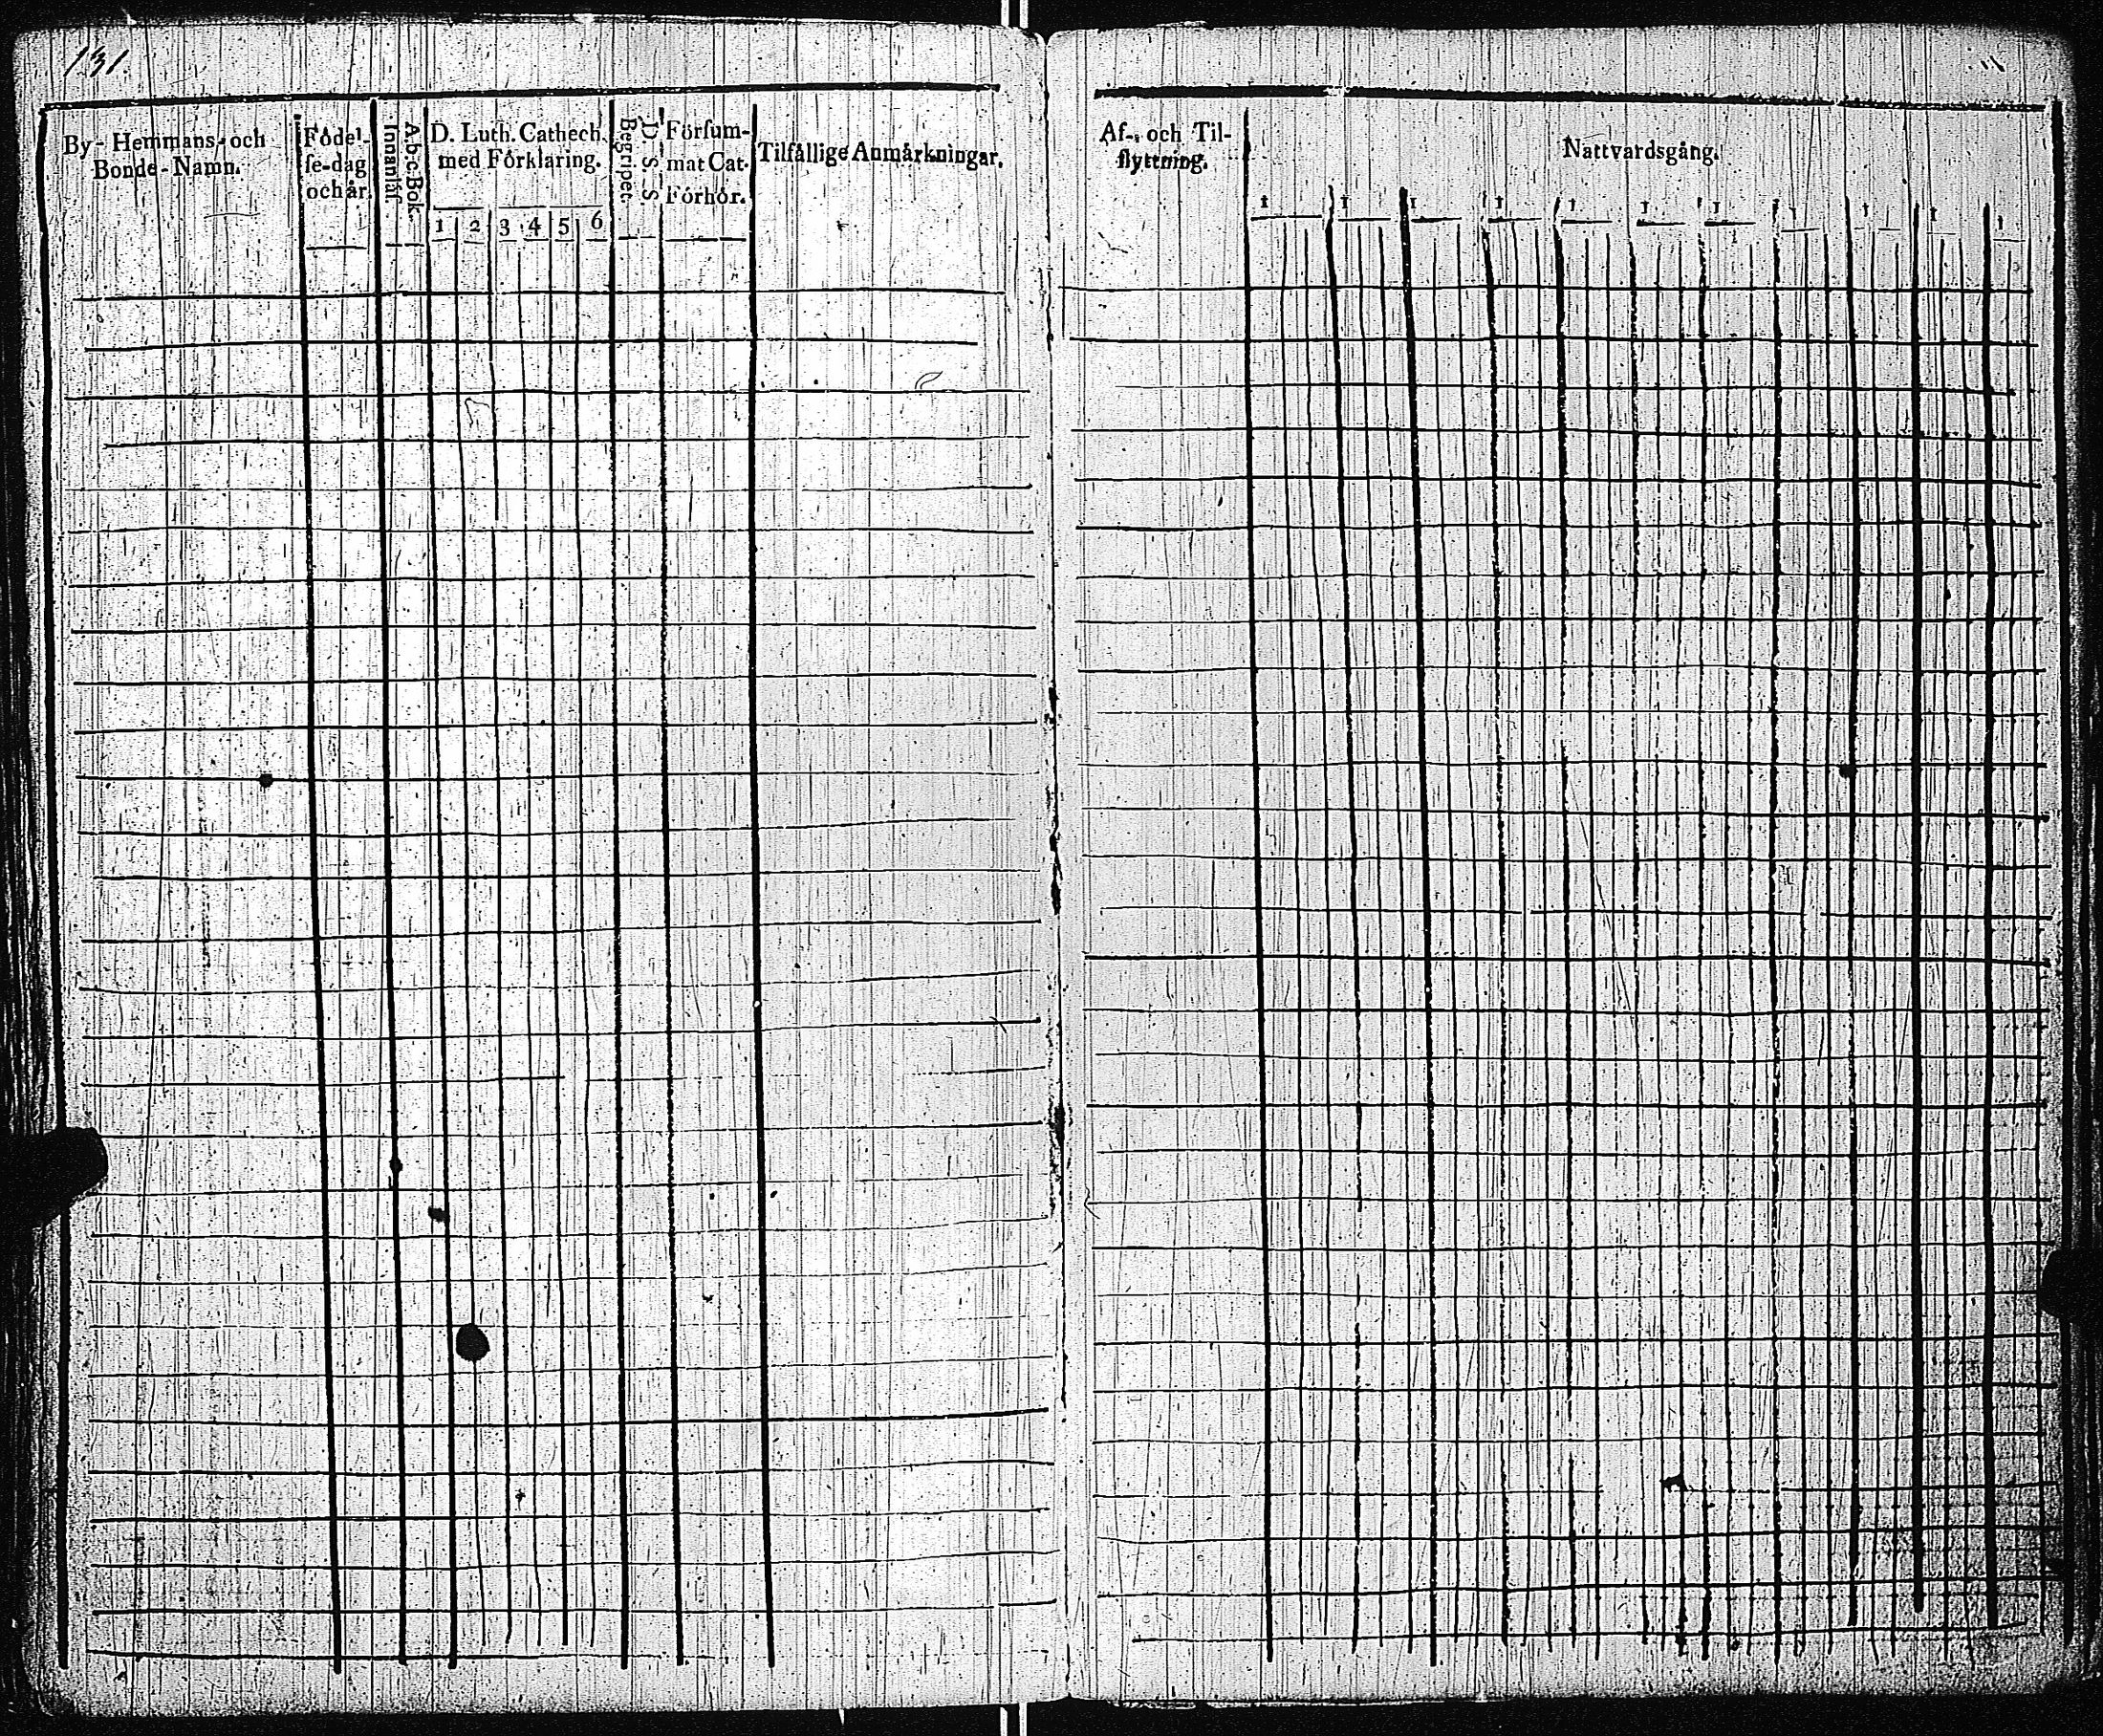 131.
By- Hemmans- och
Bonde-Namn.
Födel-
ſe-dag
och år.
A.b.c. Bok.
Innanläſ.
D. Luth. Cathech.
med Förklaring.
1 2 3 4 5 6
D. S. S
Begriper.
Förſum-
mat Cat.
Förhör.
Tilfällige Anmärkningar.
Af- och Til-
flyttning.
Nattvardsgång.
1 1 1 1 1 1 1 1 1 1 1